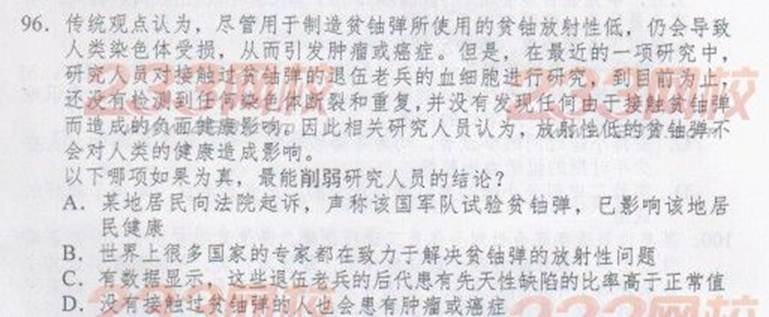 96. 传统观点认为，尽管用于制造贫铀弹所使用的贫铀放射性低，仍会导致
人类染色体受损，从而引发肿瘤或癌症。但是，在最近的一项研究中，
研究人员对接触过贫铀弹的退伍老兵的血细胞进行研究，到目前为止，
还没有检测到任何染色体断裂和重复，并没有发现任何由于接触贫铀弹
而造成的负面健康影响。因此相关研究人员认为，放射性低的贫铀弹不
会对人类的健康造成影响。
以下哪项如果为真，最能削弱研究人员的结论？
A. 某地居民向法院起诉，声称该国军队试验贫铀弹，已影响该地居
民健康
B. 世界上很多国家的专家都在致力于解决贫铀弹的放射性问题
C. 有数据显示，这些退伍老兵的后代患有先天性缺陷的比率高于正常值
D. 没有接触过贫铀弹的人也会患有肿瘤或癌症
233网校
233网校
233网校
233网校